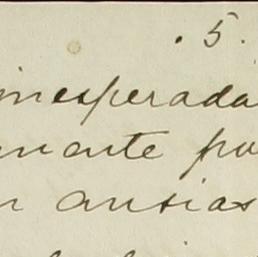 . 5.
inesperada
mente po
ansias